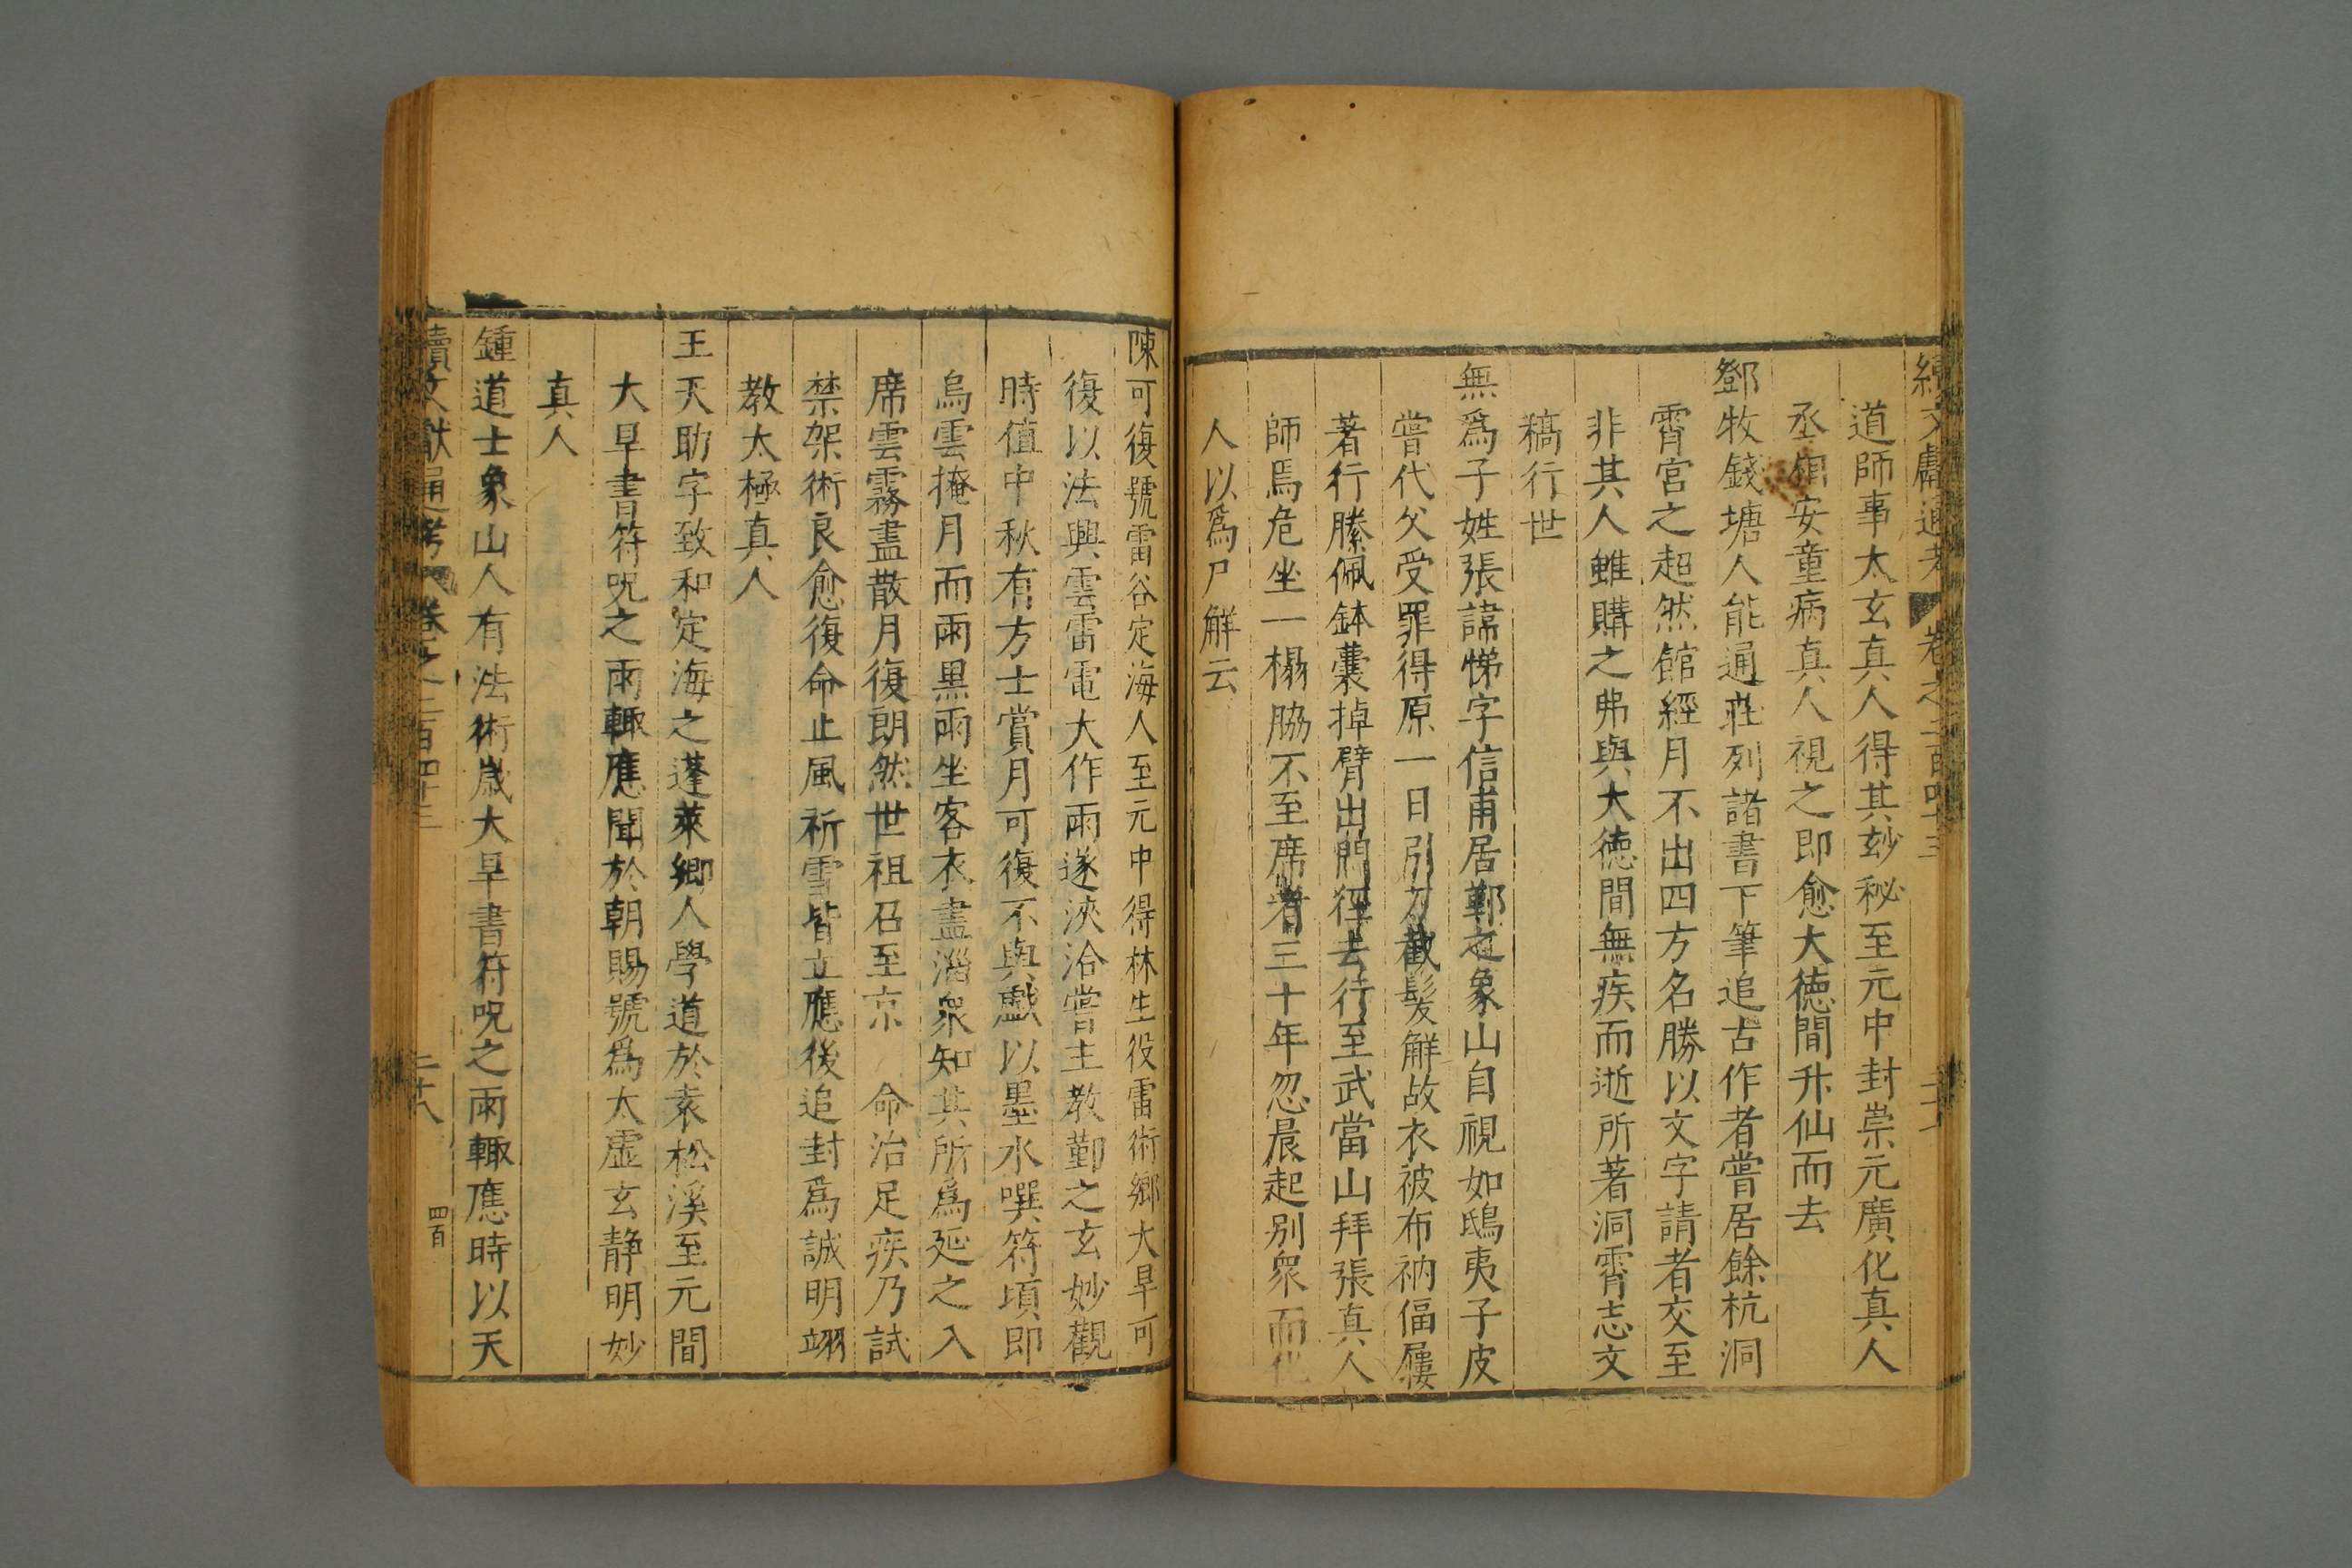 續文獻通考 卷之二百四十三
道師事太玄真人得其玅秘至元中封崇元廣化真人
丞相安童病真人視之即愈大德間升仙而去
鄧牧錢塘人能通莊列諸書下筆追古作者嘗居餘杭洞
霄宮之超然館經月不出四方名勝以文字請者交至
非其人雖購之弗與大德間無疾而逝所著洞霄志文
稿行世
無爲子姓張諱悌字信甫居鄞之象山自視如鴟夷子皮
嘗代父受罪得原一日引刀截髮解故衣被布衲偪屨
著行縢佩鉢囊掉臂出門徑去行至武當山拜張真人
師焉危坐一榻脇不至席者三十年忽晨起別衆而化
人以爲尸解云
陳可復號雷谷定海人至元中得林生役雷術鄉大旱可
復以法興雲雷電大作雨遂浹洽嘗主教勤之玄妙觀
時值中秋有方士賞月可復不與戲以墨水噀符頃即
烏雲掩月而雨黑雨坐客衣盡淄衆知其所爲延之入
席雲霧盡散月復朗然世祖召至京 命治足疾乃試
禁架術良愈復命止風祈雪皆立應後追封爲誠明翊
教太極真人
王天助字致和定海之蓬萊鄉人學道於袁松溪至元間
大旱書符呪之雨輒應聞於朝賜號爲太虛玄靜明妙
真人
鍾道士象山人有法術歲大旱書符呪之雨輒應時以天
續文獻通考 卷之二百四十三 二十八 四百